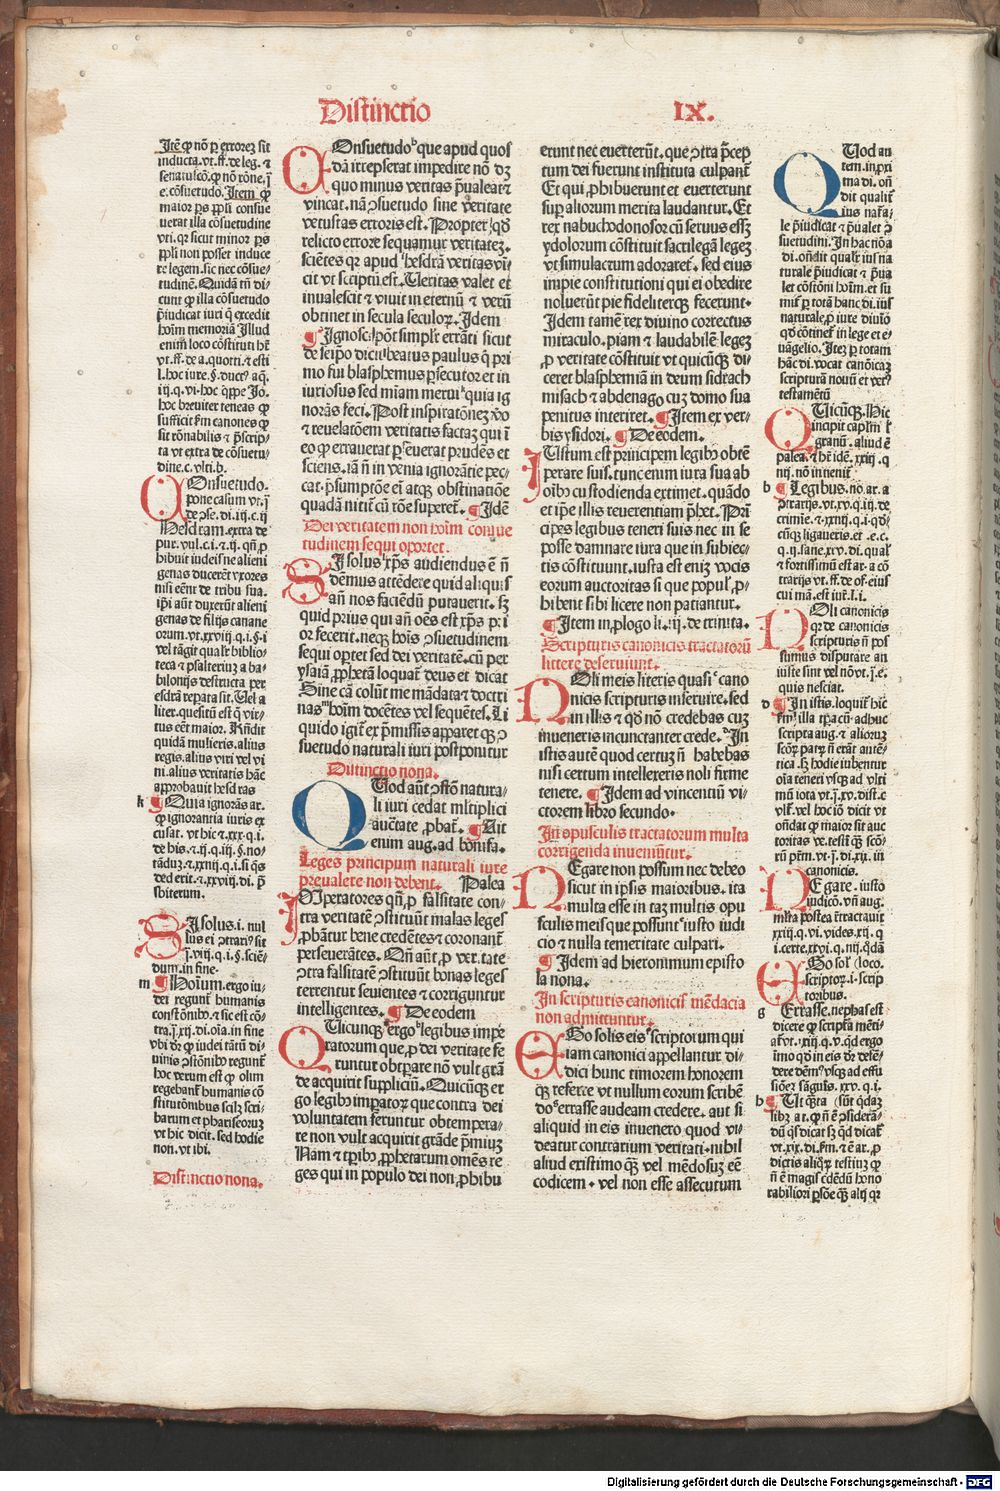 Distinctio IX.
Itē ꝙ nō ꝑ errorez sit
inducta. vt. ff. de leg. ⁊
e. cōsuetudo. Item ꝙ
maior ꝑs ppli consue
uerat illa cōsuetudine
vti. qꝛ sicut minor ꝑs
ppli non posset induce
re legem. sic nec cōsue⸗
tudinē. Quidā tn̄ di⸗
cunt ꝙ illa cōsuetudo
p̄iudicat iuri q̄ excedit
hoīm memoriā Illud
enim loco cōstituti hr̄
vt. ff. de a. quoti. ⁊ esti
hoc breuiter teneas ꝙ
sufficit ẜm canones ꝙ
sit rōnabilis ⁊ p̄scrip⸗
ta vt extra de cōsuetu⸗
dine. c. vlti. h.
COnsuetudo.
pone casum vt. j̄
extra de
bibuit iudeis ne alieni
genas ducerēt vxores
nisi eēnt de tribu sua.
ip̄i aūt duxerūt alieni
genas de filijs canane
orum. vt. xxviij. q. i. §. i
vel tāgit qualr̄ biblio⸗
teca ⁊ psalterius a ba⸗
bilonijs destructa per
esdrā reꝑata sit. Uel a
liter. quesitū est q̄ vir⸗
tus eēt maior. Rn̄dit
quidā mulieris. alius
regis. alius viri vel vi
ni. alius veritatis hāc
approbauit hesdras
k ¶ Quia ignorās ar.
ꝙ ignorantia iuris ex
cusat. vt hic ⁊. xxx. q. i.
de his. ⁊. ij. q. iij. §. no⸗
tādū. ⁊. xxiiij. q. i. si q̄s
ded erit. ⁊. xxviij. di. p̄
sbiterum.
SI solus. i. nul
lus ei ↄtrarius sit
dum. in fine.
m ¶ Hoīum. ergo iu⸗
dei regunt̄ humanis
vbi dr̄ ꝙ iudei tātū di⸗
uinis ↄstōnibꝰ regunt̄
hoc verum est ꝙ olim
regebant̄ humanis cō
stitutōnibus scilꝫ scri⸗
barum et phariseoruꝫ
vt hic dicit. sed hodie
non. vt ibi.
Distinctio nona.
COnsuetudo que apud quos
dā irrepserat impedire nō dꝫ
quo minus veritas p̄ualeat ⁊
vincat. nā ↄsuetudo sine veritate
vetustas erroris est. Propter qd̄
relicto errore sequamur veritatez.
sciētes qꝛ apud hesdrā veritas vi⸗
cit vt scriptū est. Ueritas valet et
inualescit ⁊ viuit in eternū ⁊ verū
obtinet in secula seculoꝝ. Idem
¶ Ignosci pōt simplr̄ errāti sicut
de seip̄o dicit beatus paulus q̄ pri
mo fui blasphemus ꝑsecutor et in
iuriosus sed miam merui quia ig
norās feci. Post inspiratōnez v̄o
⁊ reuelatōem veritatis factaꝫ qui ī
eo ꝙ errauerat ꝑseuerat prudēs et
sciens. iā n̄ in venia ignorātie pec⸗
cat. p̄sumptōe eī atqꝫ obstinatiōe
quadā nitit̄ cū rōe superet̄. ¶ Idē
Dei veritatem non hoīm consue
tudinem sequi oportet.
SI solus xp̄s audiendus ē n̄
dēmus attēdere quid aliquis
añ nos faciēdū putauerit. sꝫ
quid prius qui añ oēs est xp̄s pri
or fecerit. neqꝫ hoīs ↄsuetudinem
sequi oꝑtet sed dei veritatē. cū per
ysaiā ꝓphetā loquat̄ deus et dicat
Sine cā colūt me mādata ⁊ doctri
nas hoīm docētes vel sequētes. Li
quido igit̄ ex p̄missis apparet ꝙ ↄ
suetudo naturali iuri postponitur
Distinctio nona.
QUod aūt ↄstō natura⸗
li iuri cedat ml̄tiplici
auctate ꝓbat̄. ¶ Ait
enim aug. ad bonifa.
Leges principum naturali iure
preualere non debent. Palea
IMperatores qn̄ ꝓ falsitate con⸗
tra veritatē ↄstituūt malas leges
ꝓbātur bene credētes ⁊ coronant̄
perseuerātes. Qn̄ aūt ꝓ veritate
ↄtra falsitatē ↄstituūt bonas leges
terrentur seuientes ⁊ corriguntur
intelligentes. ¶ De eodem
QUicunqꝫ ergo legibus impe
ratorum que ꝓ dei veritate fe
runtur obtꝑare nō vult grā
de acquirit suppliciū. Quicūqꝫ er
go legibꝰ imꝑatoꝝ que contra dei
voluntatem feruntur obtempera⸗
re non vult acquirit grāde p̄miuꝫ
Nam ⁊ tꝑibꝰ ꝓphetarum omēs re
ges qui in populo dei non ꝓhibu
erunt nec euerterūt. que ↄtra p̄cep
tum dei fuerunt instituta culpant̄
Et qui ꝓhibuerunt et euerterunt
suꝑ aliorum merita laudantur. Et
rex nabuchodonosor cū seruus esset
ydolorum cōstituit sacrilegā legeꝫ
vt simulacrum adoraret̄. sed eius
impie constitutioni qui ei obedire
noluerūt pie fideliterqꝫ fecerunt.
Idem tamē rex diuino correctus
miraculo. piam ⁊ laudabilē legeꝫ
ꝓ veritate cōstituit vt quicūqꝫ di⸗
ceret blasphemiā in deum sidrach
misach ⁊ abdenago cuꝫ domo sua
penitus interiret. ¶ Item ex ver⸗
bis ysidori. ¶ De eodem.
IUstum est principem legibꝰ obtē
perare suis. tunc enim iura sua ab
oībꝰ custodienda extimet. quādo
et ip̄e illis reuerentiam p̄bet. Prī
cipes legibus teneri suis nec in se
posse damnare iura que in subiec⸗
tis cōstituunt. iusta est eniꝫ vocis
eorum auctoritas si que popul̓ ꝓ⸗
hibent sibi licere non patiantur.
¶ Item in ꝓlogo li. iij. de trinita.
Scripturis canonicis tractatorū
littere deseruiunt.
NOli meis literis quasi cano
nicis scripturis inseruire. sed
in illis ⁊ qd̄ nō credebas cuꝫ
inueneris incunctanter crede. In
istis autē quod certuꝫ n̄ habebas
nisi certum intellexeris noli firme
tenere. ¶ Idem ad vincentiū vi⸗
ctorem libro secundo.
In opusculis tractatorum multa
corrigenda inueniūtur.
NEgare non possum nec debeo
sicut in ipsis maioribus. ita
multa esse in taꝫ multis opu
sculis meis que possunt iusto iudi
cio ⁊ nulla temeritate culpari.
¶ Idem ad hieronimum episto
la nona.
In scripturis canonicis mēdacia
non admittuntur.
EGo solis eis scriptorum qui
iam canonici appellantur di⸗
dici hunc timorem honorem
qꝫ referre vt nullum eorum scribē
do errasse audeam credere. aut si
aliquid in eis inuenero quod vi⸗
deatur contrarium veritati. nihil
aliud existimo qꝫ vel mēdosuꝫ eē
codicem. vel non esse assecutum
QUod au
tem. in pxi
ma di. oñ
dit qualit̄
ius nat̄a⸗
le p̄iudicat ⁊ p̄ualet ↄ
suetudini. In hac nōa
di. oñdit qualr̄ ius na
turale p̄iudicat ⁊ p̄ua
let cōstōni hoīm. et su
mit̄ ꝑ totā hanc di. ius
naturale ꝓ iure diuīo
qd̄ cōtinet̄ in lege et e⸗
uāgelio. Iteꝫ ꝑ totam
hāc di. vocat canōicaꝫ
scripturā nouū et vetꝰ
testamētū
QUicūqꝫ. Hic
incipit caplm̄ ẜm
granū. aliud ē
palea. ⁊ hr̄ idē. xxiij. q
iij. nō inuenit̄
b ¶ Legibus. no. ar. a
cūqꝫ ligaueris. et. e. c.
⁊ fortissimū est ar. a cō
trarijs vt. ff. de of. eius
cui mā. est iur̄. l. i.
NOli canonicis
qꝛ de canonicis
scripturis n̄ pos
sumus disputare an
iuste sint vel nō vt. j̄. e.
quis nesciat.
d ¶ In istis. loquit̄ hic
ẜm illa tꝑa cū adhuc
scripta aug. ⁊ alioruꝫ
scōꝝ patꝝ n̄ erāt autē⸗
tica. sꝫ hodie iubentur
oīa teneri vsqꝫ ad vlti
mū iota vt. j̄. xv. dist. c
vlt̄. vel hoc iō dicit vt
oñdat ꝙ maior sit auc
toritas ve. testi qꝫ scō⸗
rū
canonicis.
NEgare. iusto
iudicō. vñ aug.
ml̄ta postea retractauit
xxiij. q. vi. vides. xij. q.
EGo solꝰ loco.
scriptoꝝ. i. scrip
toribus.
g Errasse. nephas est
dicere ꝙ scriptā mēti⸗
at̄. vt. xxij. q. v. qd̄ ergo
īmo qd̄ in eis dr̄ defē⸗
dere dēm̄ vsqꝫ ad effu
siōeꝫ sāguīs. xxv. q. i.
h ¶ Ut q̄nta sūt qdaꝫ
libꝫ ar. ꝙ n̄ ē ↄsiderā⸗
dū qs dicat sꝫ qd̄ dicat̄
vt. xix. di. ẜm. ⁊ ē ar. ꝓ
dictis aliqꝝ testiuꝫ ꝙ
n̄ ē magis cdēdū hono
rabiliori ꝑsōe qꝫ alij qꝛ
Digitalisierung gefördert durch die Deutsche Forschungsgemeinschaft - DFG